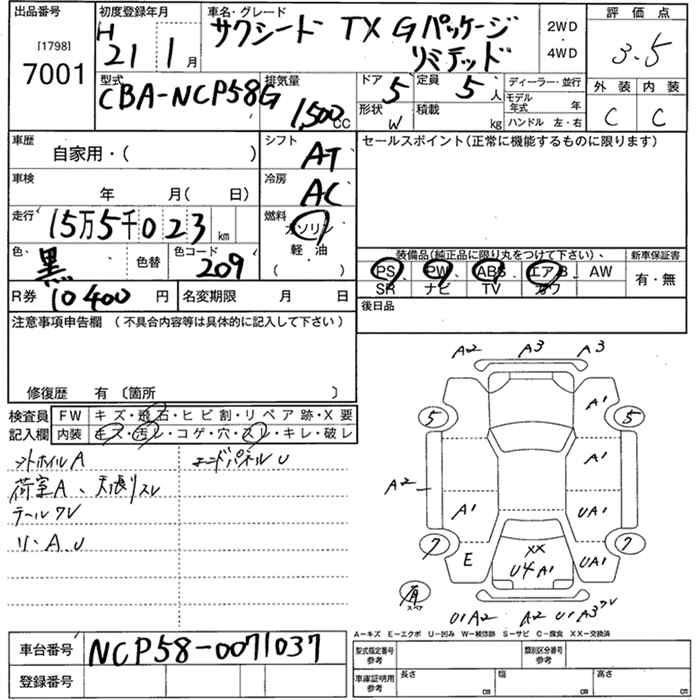 出品番号
[1798]
7001
初度登録年月
H 21 1月
車名・グレード
サクシード TX Gパッケージ
リミテッド
2WD
4WD
評価点
3.5
外装 内装
C C
型式
CBA-NCP58G
排気量
1,500cc
ドア 5
定員 5人
形状 W
積載 kg
ディーラー・並行
モデル年式 年
ハンドル 左・右
車歴
自家用・( )
車検
年 月( 日)
走行
15万5千023km
色
黒
色替
色コード
209
R券 10400円
名変期限 月 日
シフト
AT
冷房
AC
燃料
ガソリン
軽油
( )
セールスポイント(正常に機能するものに限ります)
装備品(純正品に限り丸をつけて下さい)
PS PW ABS エアB AW
SR ナビ TV カワ
新車保証書
有・無
後日品
注意事項申告欄 (不具合内容等は具体的に記入して下さい)
修復歴 有 〔箇所 〕
検査員
記入欄
FW キズ・飛石・ヒビ割・リペア跡・X要
内装 キズ・汚レ・コゲ・穴・スレ・キレ・破レ
エンドパネルU
荷室A、天張リスレ
テールワレ
リ・A、U
A2 A3 A3
5 A1 5
A1
A2
A1 UA1
7 7
E XX UA1
U4 A1
有
スペア
U1A2 A2 U1A3ワレ
A-キズ E-エクボ U-凹み W-補修跡 S-サビ C-腐食 XX-交換済
車台番号 NCP58-0071037
登録番号
型式指定番号
参考
類別区分番号
参考
車庫証明用
参考
長さ cm
幅 cm
高さ cm